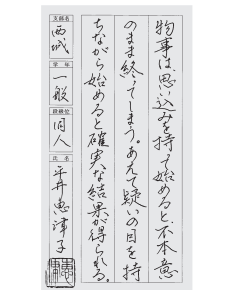 物事は思い込みを持って始めると不本意
のまま終ってしまう。あえて疑いの目を持
ちながら始めると確実な結果が得られる。
支部名
西城
学年
一般
段級位
旧人
氏名
平井恵津子